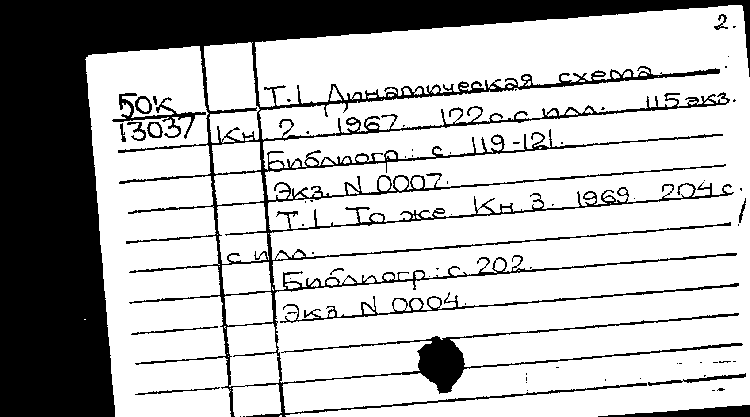 2.
Т.1. Динамическая схема.
50к
13037
Кн. 2. 1967. 122 с. с илл. 115 экз.
Библиогр.: с. 119-121.
Экз. N 0007.
Т.1. То же. Кн. 3. 1969. 204 с.
с илл.
Библиогр.: с. 202.
Экз. N 0004.